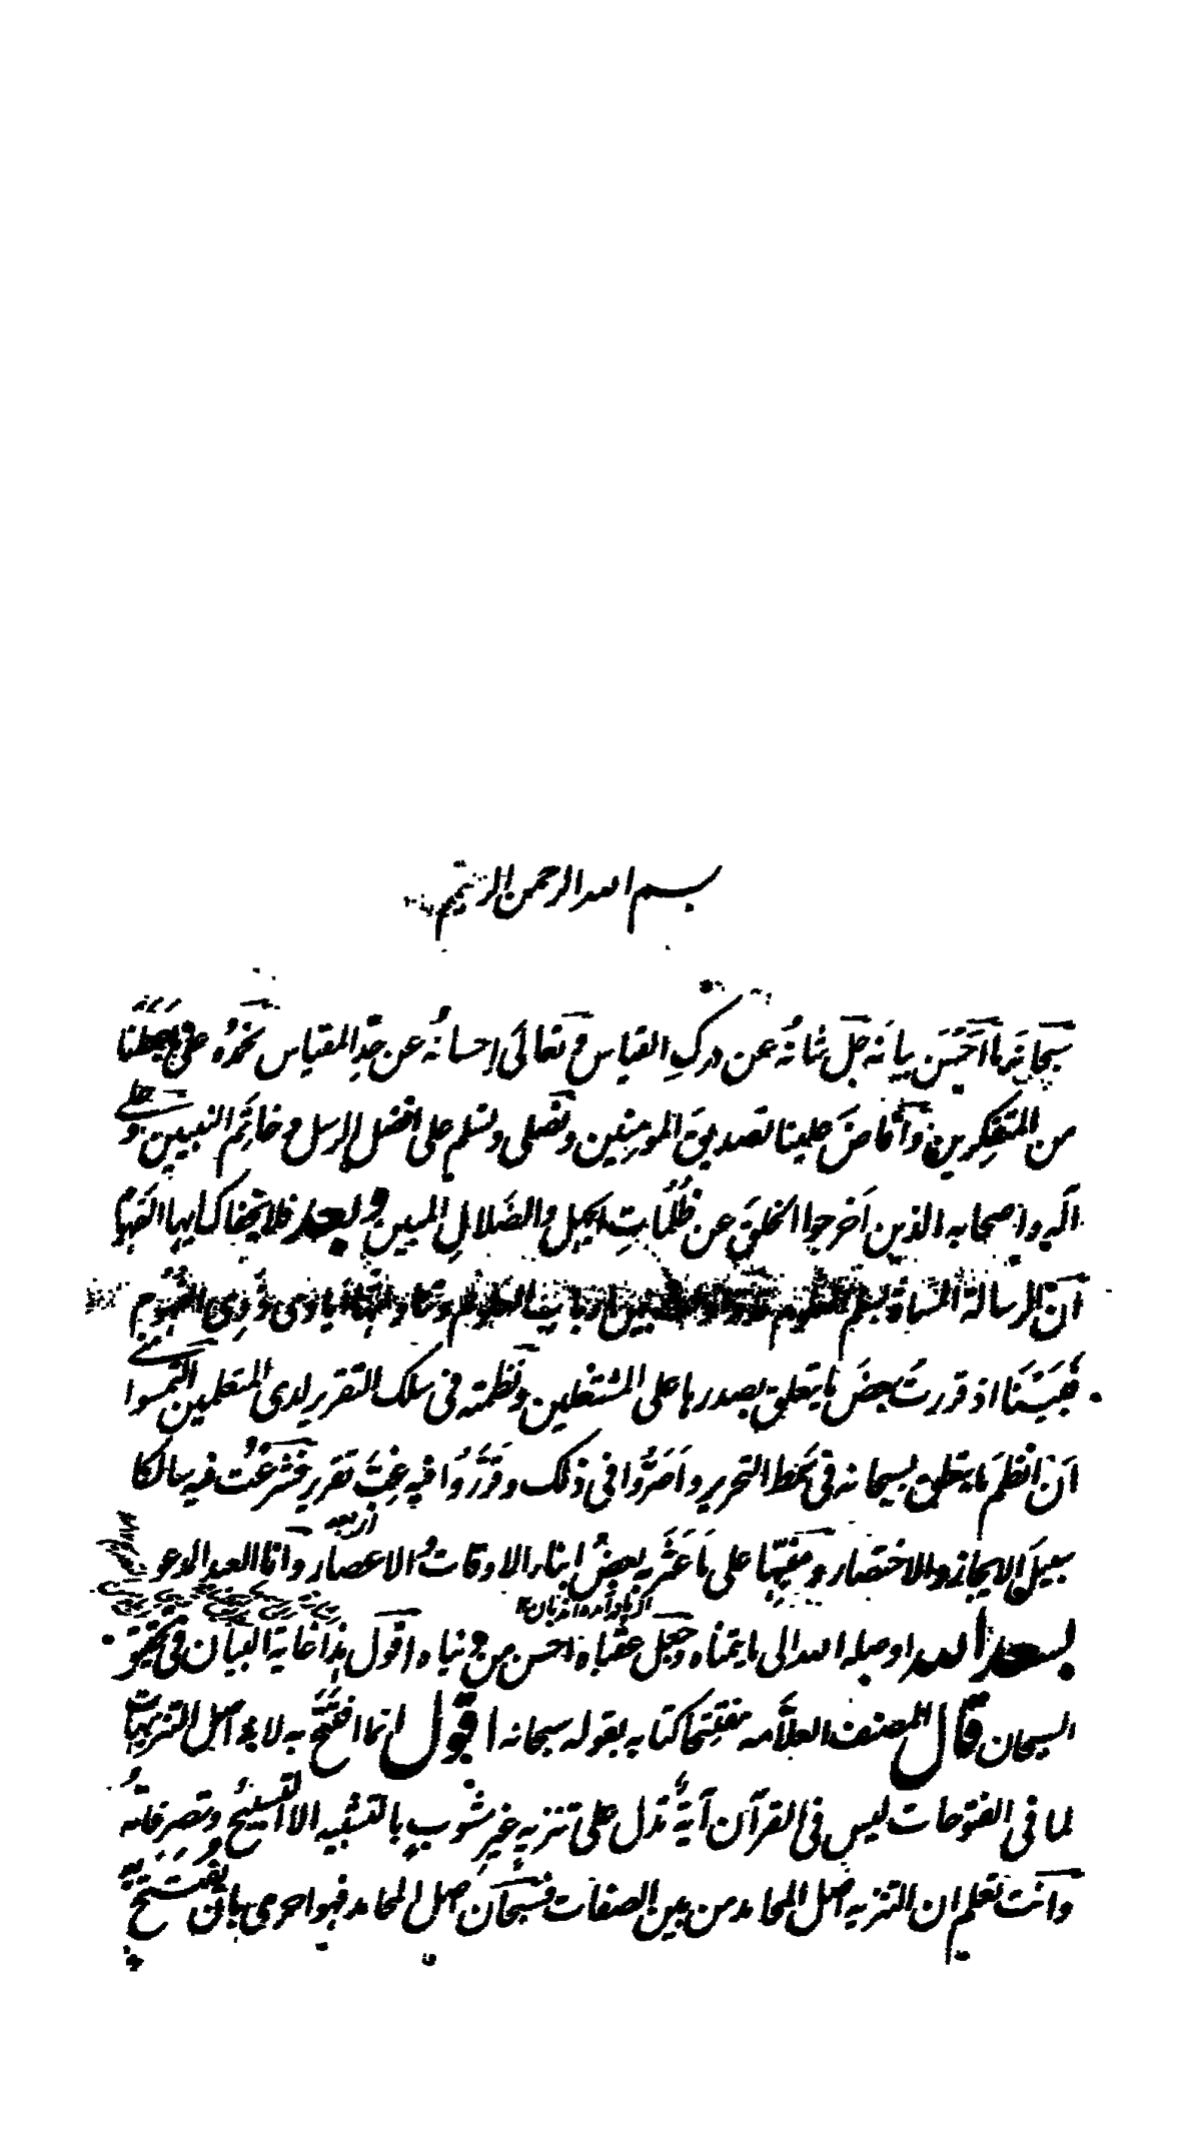 بسم الله الرحمن الرحيم
سبحانه ما احسن بيانه جل شانه عن درك القياس و تعالى احسانه عن حد المقياس نحمده على ما جعلنا
من المتفكرين و افاض علينا تصديق المومنين و نصلى و نسلم على افضل الرسل و خاتم النبيين و على
اله و اصحابه الذين اخرجوا الخلق عن ظلمات الجهل و الضلال المبين و بعد فلا يخفاكما ايها الفهام
ان الرسالة المسماة بسلم العلوم بين ارباب العلوم الفهوم
فبينا اذ قررت بعض ما يتعلق بصدرها على المشتغلين و نظمته فى سلك التقرير لدى المتعلمين التمسوا منى
ان انظم ما يتعلق بسبحانه فى نمط التحرير و اصروا فى ذلك و قرروا فيه غب تقرير فشرعت فيه سالكا
سبيل الايجاز و الاختصار و منبها على ما عثر به بعض ابناء الاوقات و الاعصار و انا العبد المدعو
بسعد الله اوصله الله الى ما يتمناه و جعل عقباه احسن من دنياه اقول هذا غاية البيان فى تحقيق
السبحان قال المصنف العلامه مفتتحا كتابه بقوله سبحانه اقول انما افتتح به لانه اصل التنزيهات
لما فى الفتوحات ليس فى القرآن آية تدل على تنزيه غير مشوب بالتشبيه الا التسبيح و تصرفاته
و انت تعلم ان التنزيه اصل المحامد من بين الصفات فسبحان اصل المحامد فهو احرى بان يفتتح به